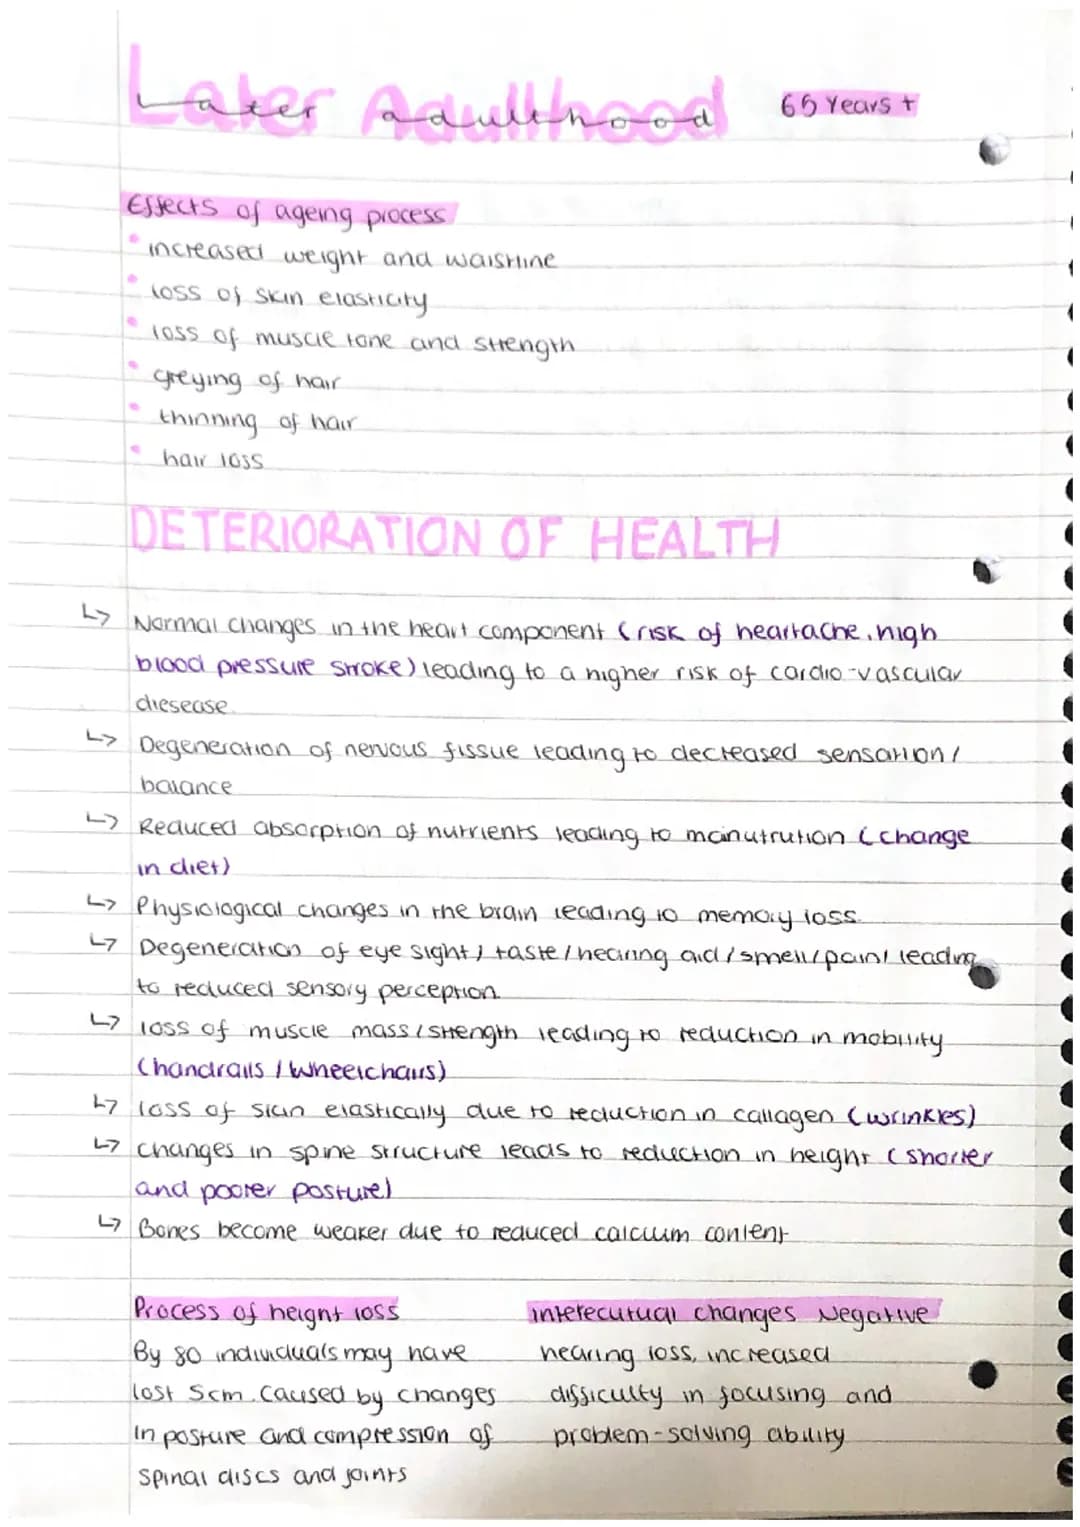 Later Adulthood 65 Years +
Effects of ageing process
increased weight and waistline
loss of skin elasticity
loss of muscle tone and strength
greying of hair
thinning of hair
hair loss
DETERIORATION OF HEALTH
↳ Normal changes in the heart component (risk of heartache, high
blood pressure stroke) leading to a higher risk of cardio-vascular
diesease.
↳ Degeneration of nervous fissue leading to decreased sensation/
balance
↳ Reduced absorption of nutrients leading to malnutrution (change
in diet)
↳ Physiological changes in the brain leading to memory loss.
↳ Degeneration of eye sight/ taste/hearing aid/smell/pain/ leading
to reduced sensory perception.
↳ loss of muscle mass/strength leading to reduction in mobility
(handrails/wheelchairs)
↳ loss of skin elastically due to reduction in callagen (wrinkles)
↳ changes in spine structure leads to reduction in height (shorter
and poorer posture)
↳ Bones become weaker due to reduced calcium content
Process of height loss
By 80 individuals may have
lost 5cm. Caused by changes
in posture and compression of
spinal discs and joints
intelecutual changes Negative
hearing loss, increased
difficulty in focusing and
problem-solving ability